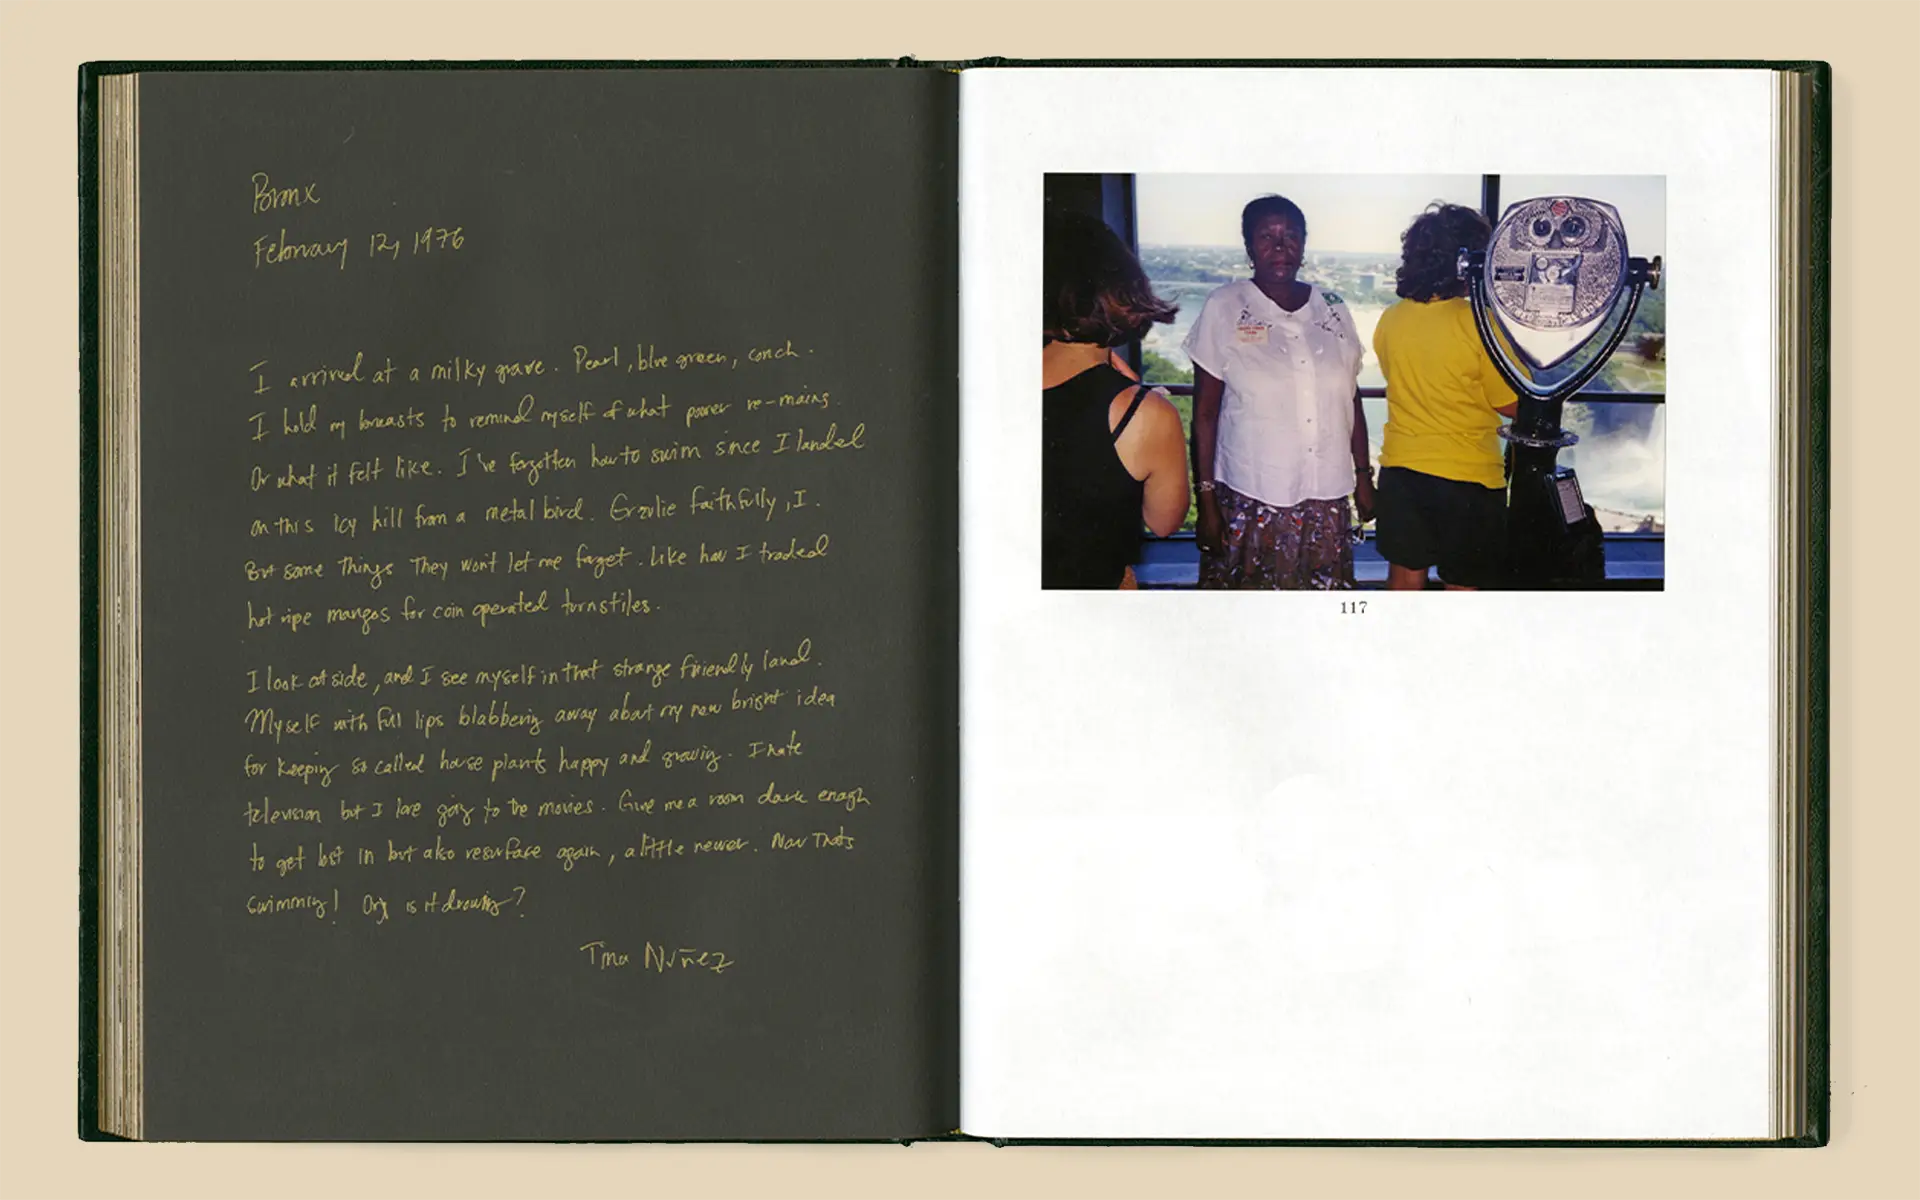 Bronx
February 12, 1976
I arrived at a milky grave. Pearl, blue green, conch.
I hold my breasts to remind myself of what power re-mains.
Or what it felt like. I've forgotten how to swim since I landed
on this icy hill from a metal bird. Erzulie faithfully, I.
But some things they won't let me forget. Like how I traded
hot ripe mangos for coin operated turnstiles.
I look outside, and I see myself in that strange friendly land.
Myself with full lips blabbering away about my new bright idea
for keeping so called house plants happy and growing. I hate
television but I love going to the movies. Give me a room dark enough
to get lost in but also resurface again, a little newer. Now thats
swimming! Or is it drowning?
Tina Nuñez
117